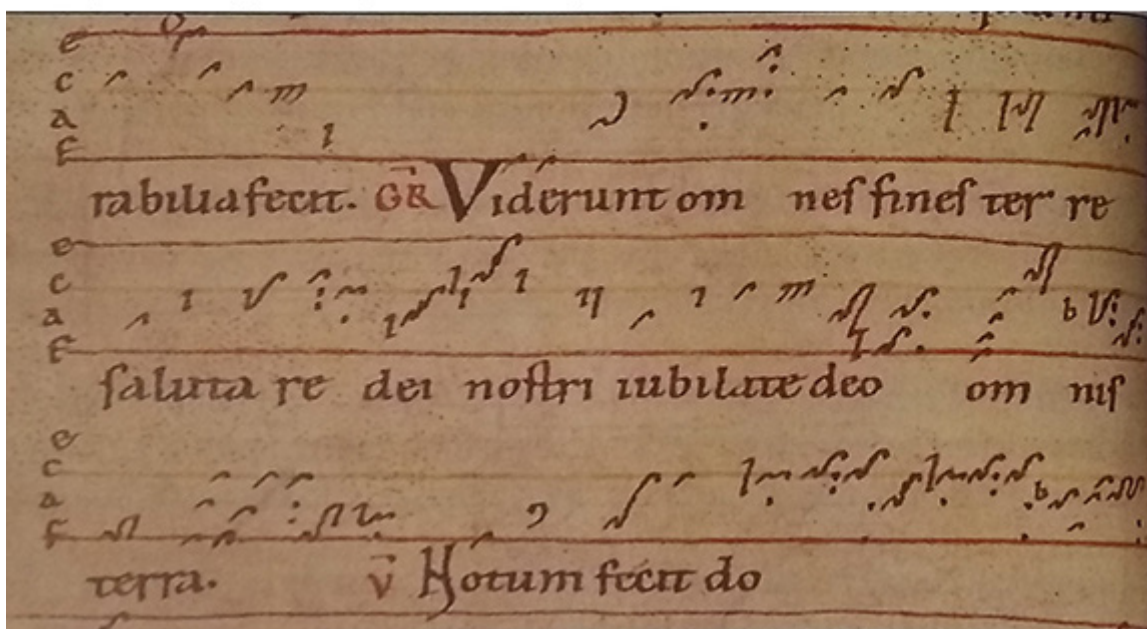 e
c
a
F
rabilia fecit. GR Viderunt om neſ fineſ ter re
e
c
a
F
b
ſaluta re dei noſtri iubilate deo om niſ
e
c
a
F
b
terra. V Notum fecit do